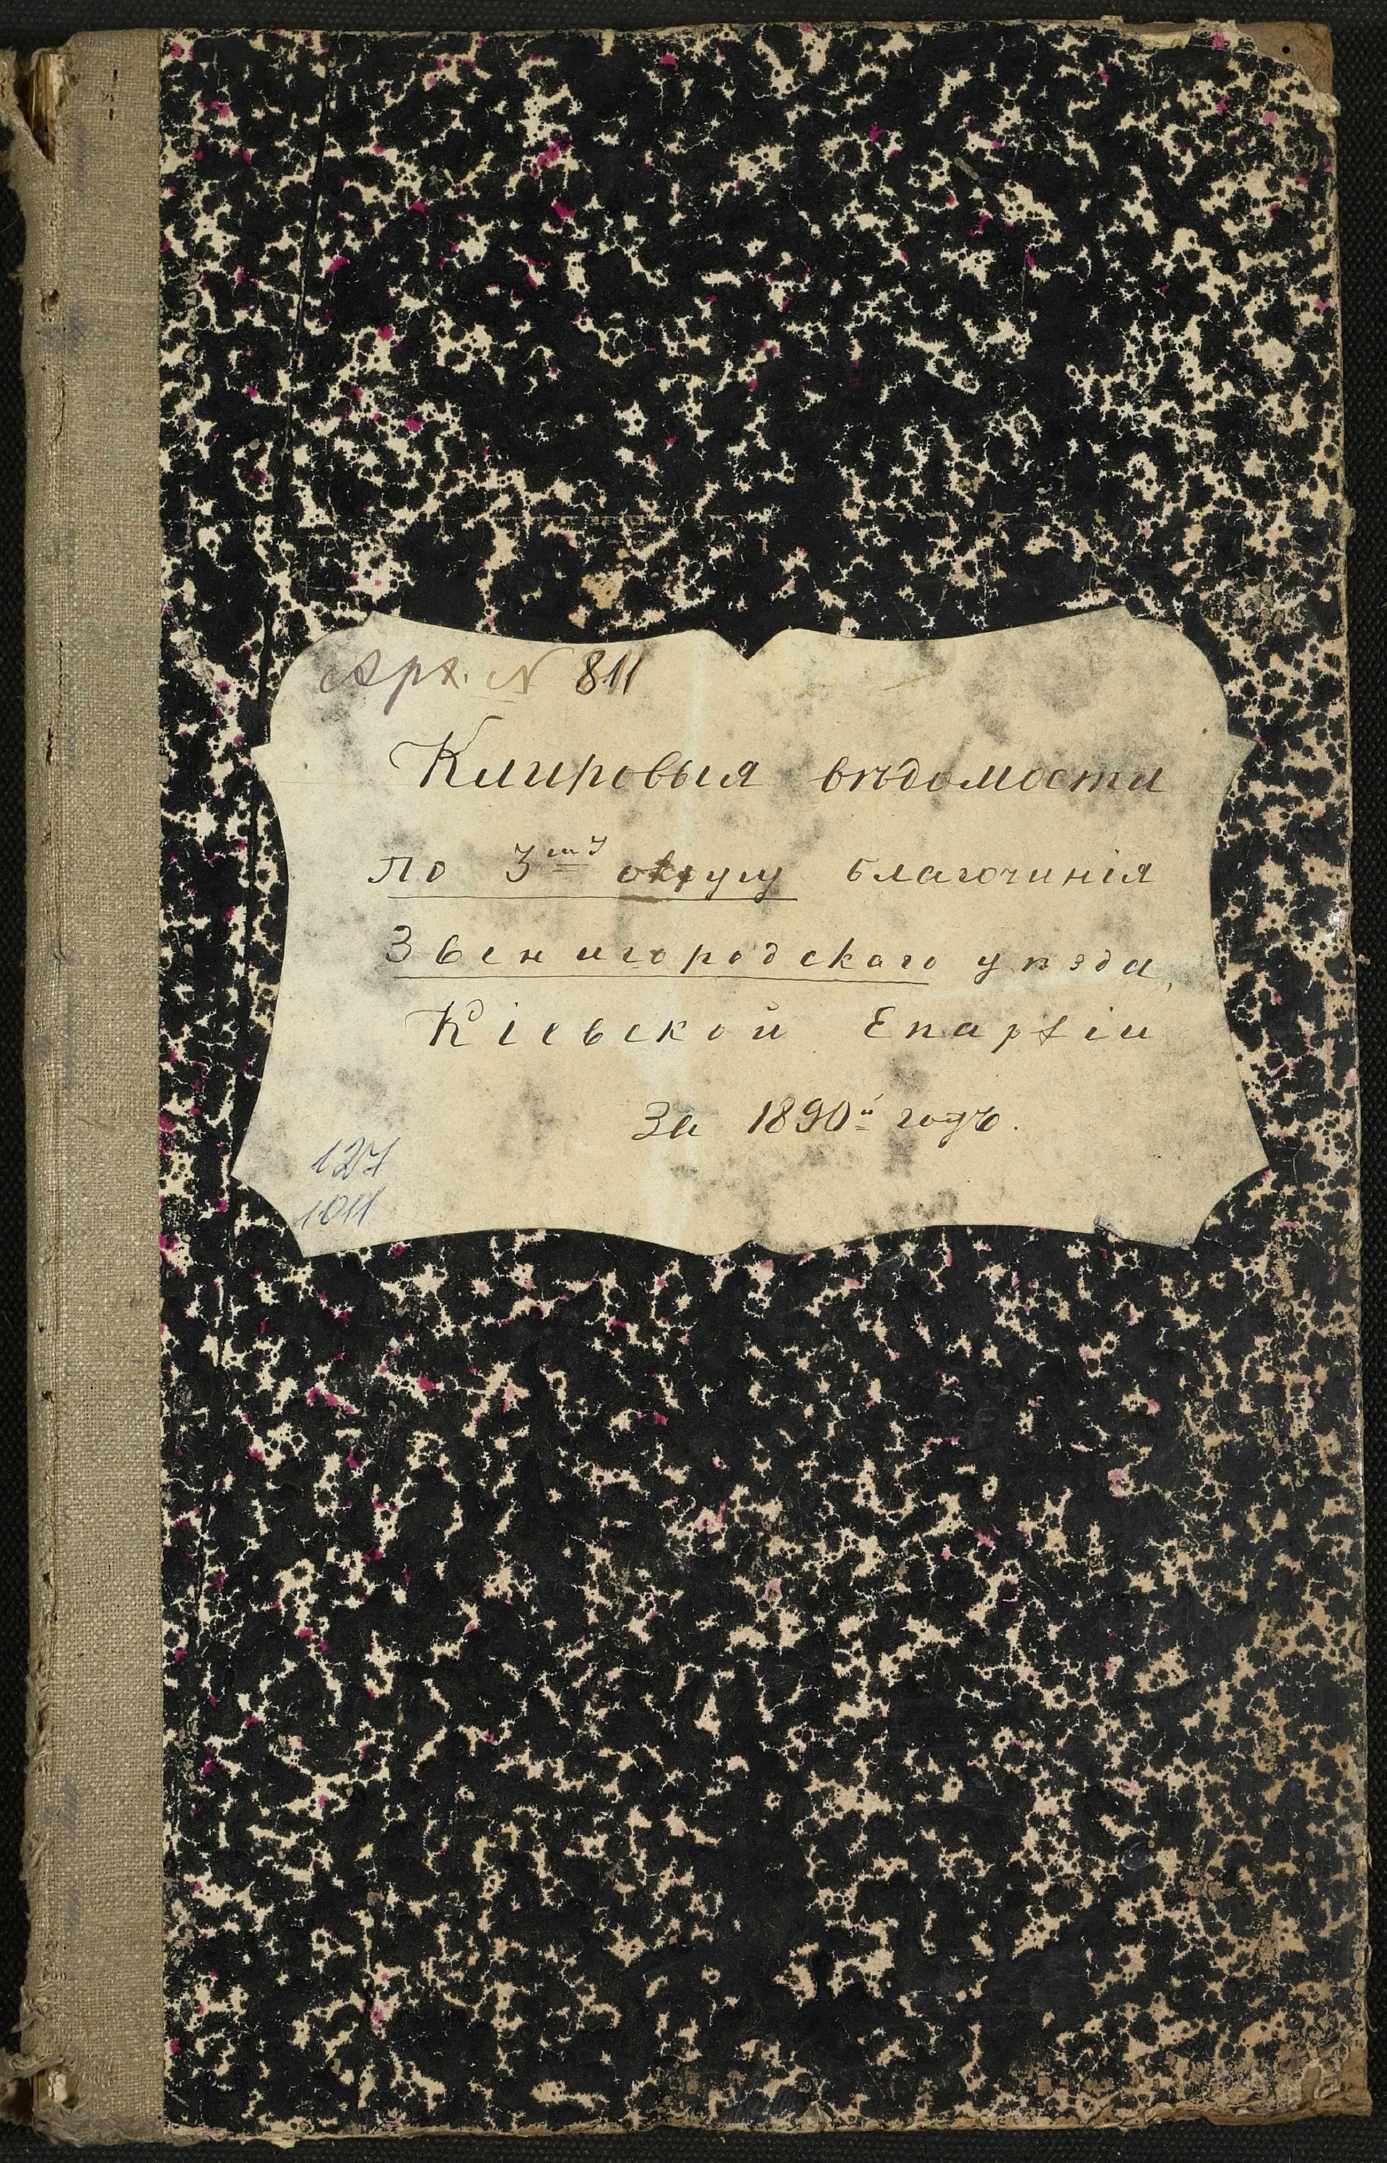 Арх. N 811
Клировыя вѣдомости
по 3му округу благочинія
Звенигородскаго уѣзда,
Кіевской Епархіи
За 1890й годъ.
127
1011